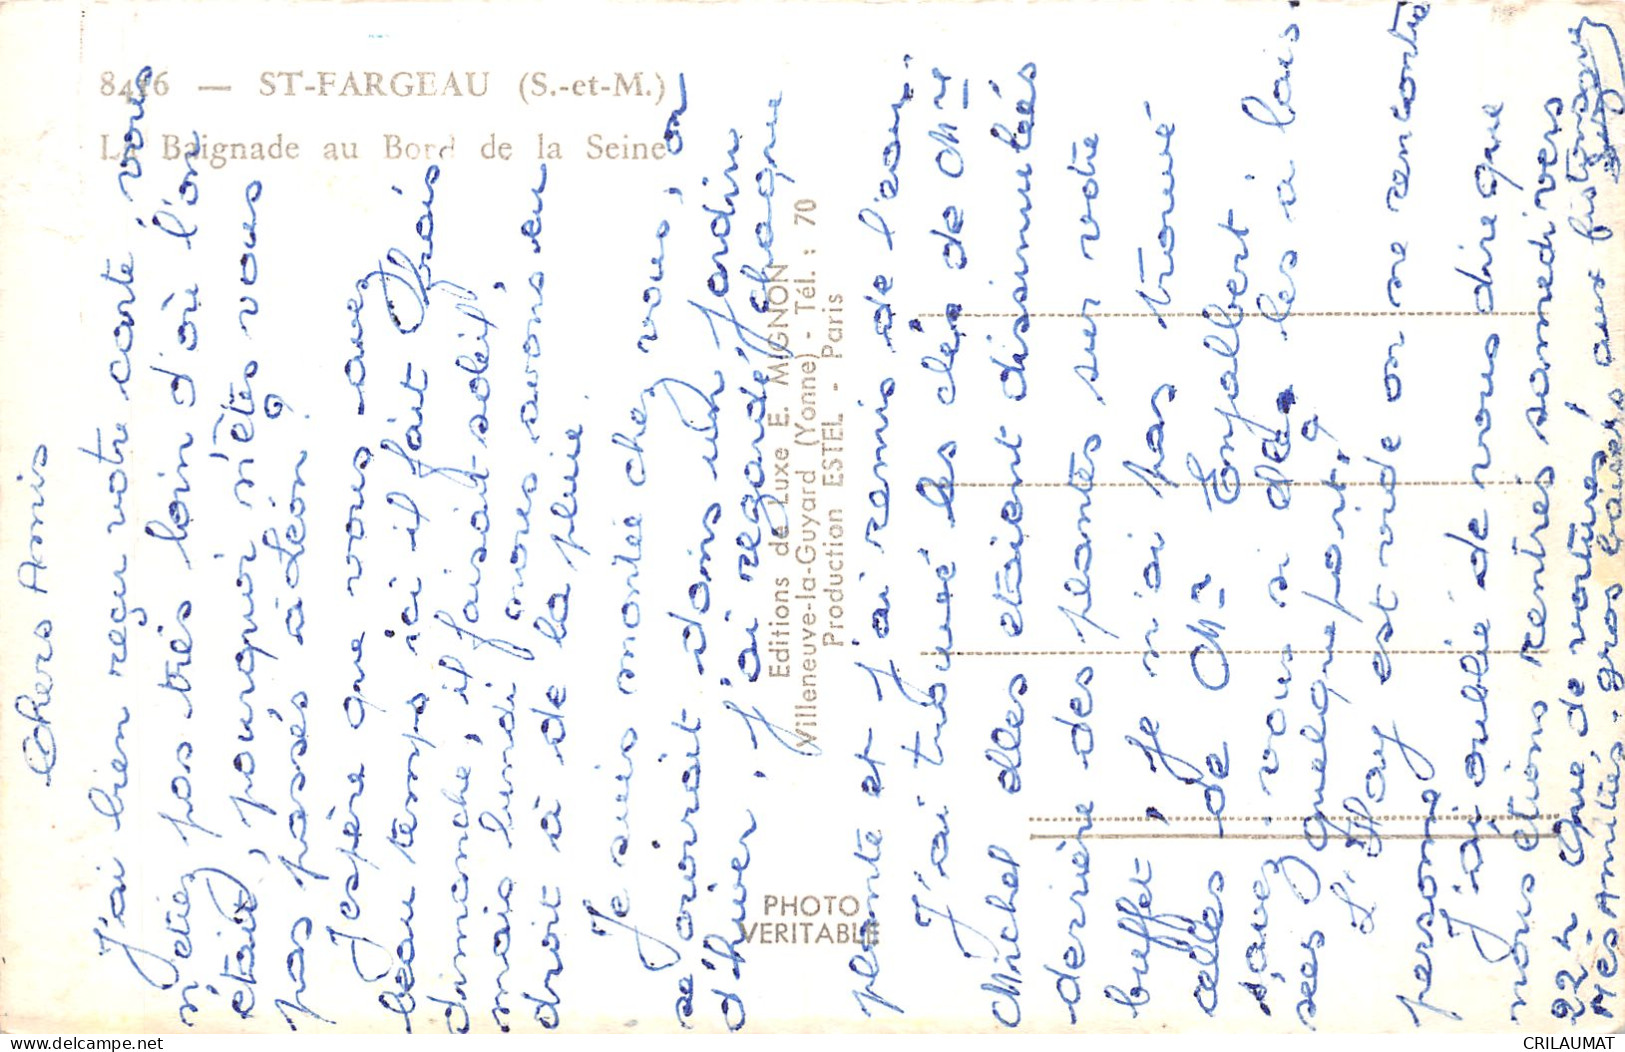 8476 — ST-FARGEAU (S.-et-M.)
La Baignade au Bord de la Seine
Editions de Luxe E. MIGNON
Villeneuve-la-Guyard (Yonne) - Tél. : 70
Production ESTEL - Paris
PHOTO
VERITABLE
Chers Amis
J'ai bien reçu votre carte, vous
n'étiez pas très loin d'où l'on
était, pourquoi n'êtes vous
pas passés à Léon ?
J'espère que vous avez
beau temps, ici il fait frais
dimanche, il faisait soleil,
mais lundi nous avons eu
droit à de la pluie.
Je suis montée chez vous, on
se croirait dans un jardin
d'hiver, j'ai regardé chaque
plante et j'ai remis de l'eau.
J'ai trouvé les clés de Mr
Michel elles étaient dissimulées
derrière des plantes sur votre
buffet, je n'ai pas trouvé
celles de Mr Enjalbert
savez vous si il les à lais-
sées quelque part ?
L'Hay est vide on ne rencontre
personne
J'ai oublié de vous dire que
nous étions rentrés samedi vers
22 h Que de voitures,
Mes Amitiés. gros baisers aux fistons
CRILAUMAT